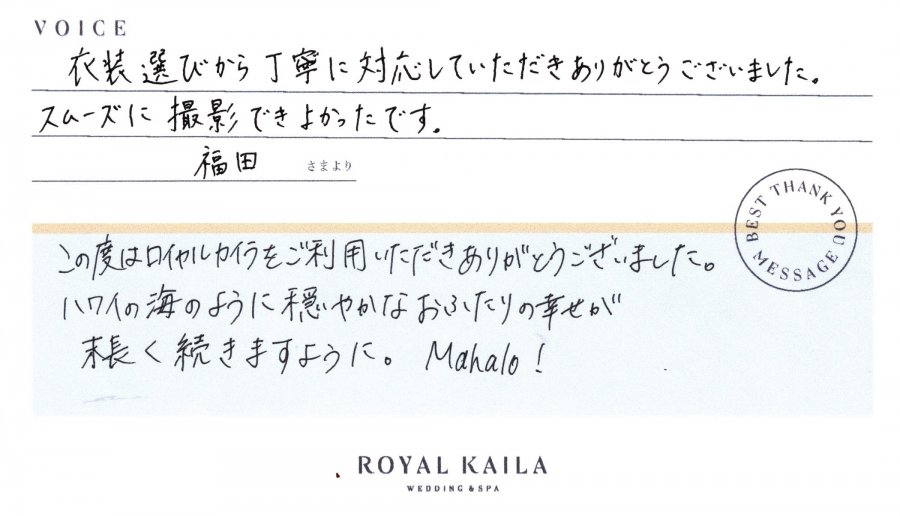 VOICE
衣装選びから丁寧に対応していただきありがとうございました。
スムーズに撮影できよかったです。
福田 さまより
BEST THANK YOU MESSAGE
この度はロイヤルカイラをご利用いただきありがとうございました。
ハワイの海のように穏やかなおふたりの幸せが
末長く続きますように。 Mahalo!
ROYAL KAILA
WEDDING & SPA